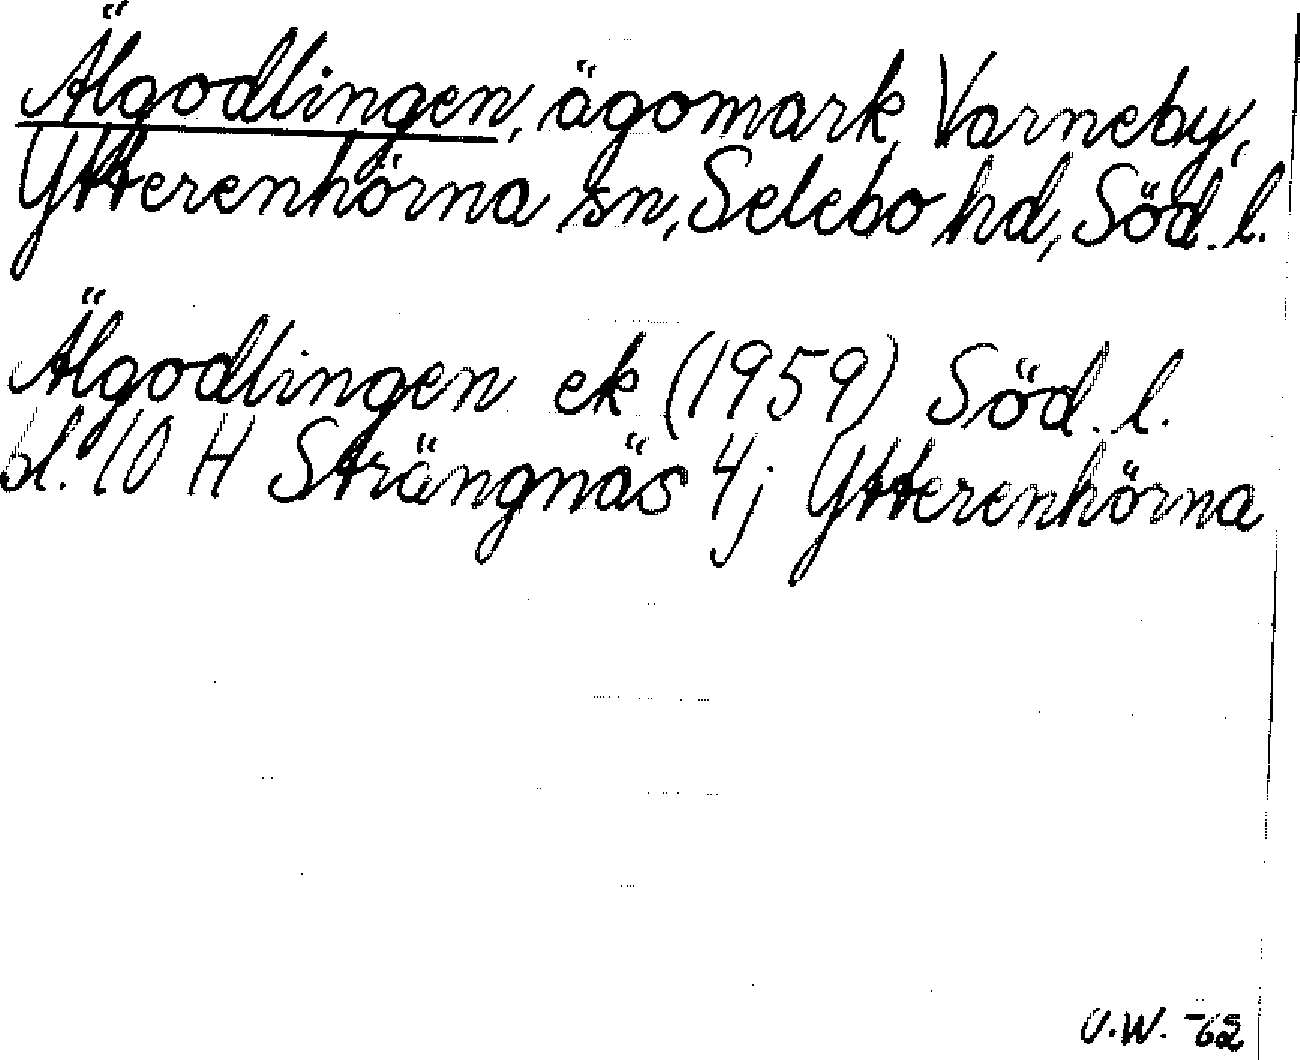 Älgodlingen, ägomark, Varneby,
Ytterenhörna sn, Selebo hd, Söd. l.
Älgodlingen ek (1959) Söd. l.
bl. 10 H Strängnäs 4j Ytterenhörna
U.W. -62